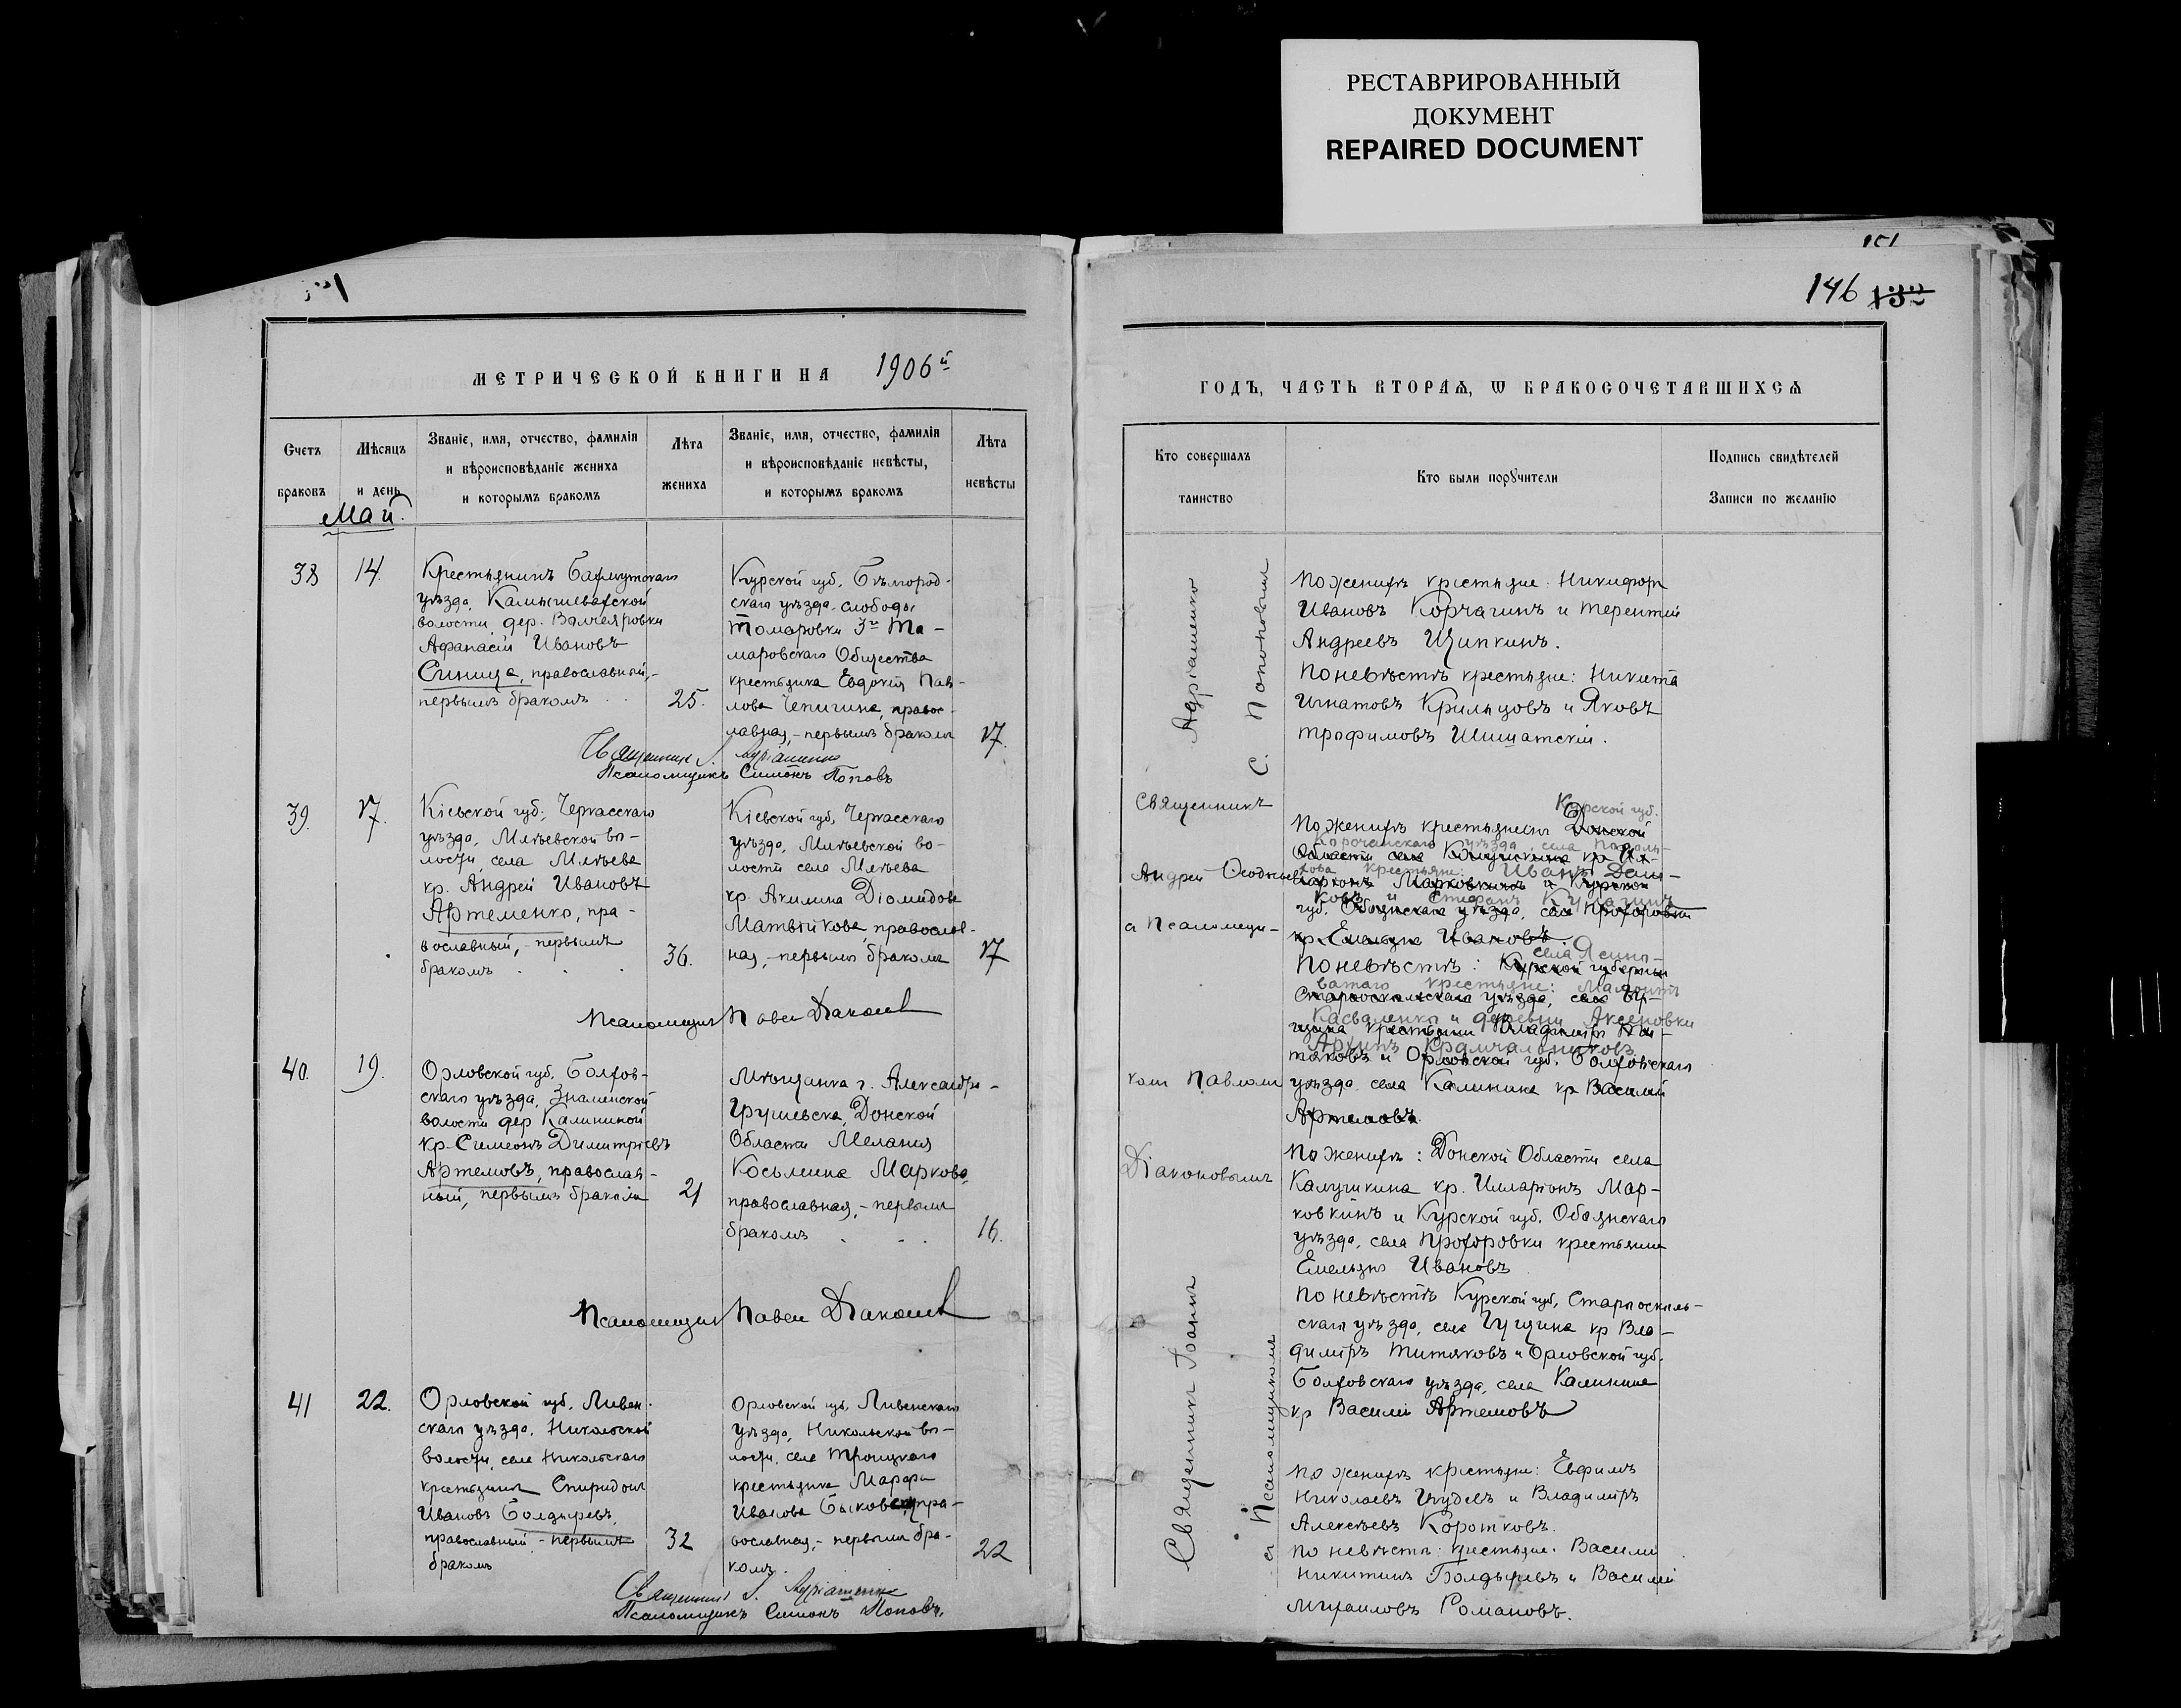 РЕСТАВРИРОВАННЫЙ
ДОКУМЕНТ
REPAIRED DOCUMENT
146
МЕТРИЧЕСКОЙ КНИГИ НА 1906й
Счетъ
браковъ
Мѣсяцъ
и день
Званіе, имя, отчество, фамилія
и вѣроисповѣданіе жениха
и которымъ бракомъ
Лѣта
жениха
Званіе, имя, отчество, фамилія
и вѣроисповѣданіе невѣсты,
и которымъ бракомъ
Лѣта
невѣсты
Май.
38
14.
Крестьянинъ Бахмутскаго
уѣзда, Камышевахской
волости дер.
Афанасій Ивановъ
Синица, православный,-
первымъ бракомъ
25.
Курской губ. Бѣлгород-
скаго уѣзда, слободы
Томаровки 3го То-
маровскаго Общества
крестьянка Евдокія Пав-
лова Чепигина, правос-
лавная,- первымъ бракомъ
17.
Священникъ І. Адріашенко
Псаломщикъ Симеонъ Поповъ
39.
17.
Кіевской губ., Черкасскаго
уѣзда, Млѣевской во-
лости, села Млѣева
кр. Андрей Ивановъ
Артеменко, пра-
вославный,- первымъ
бракомъ
36.
Кіевской губ, Черкасскаго
уѣзда, Млѣевской во-
лости села Млѣева
кр. Акилина Діомидова
Матвійкова, православ-
ная,- первымъ бракомъ
17
Псаломщикъ Павелъ Діаконовъ
40.
19.
Орловской губ. Болхов-
скаго уѣзда, Знаменской
волости дер Калининой
кр. Симеонъ Димитріевъ
Артемовъ, православ-
ный, первымъ бракомъ
21
Мѣщанка г. Александро-
Грушевска, Донской
Области Меланія
Косьмина Маркова,
православная,- первымъ
бракомъ
16.
Псаломщикъ Павелъ Діаконовъ
41
22.
Орловской губ. Ливен-
скаго уѣзда, Никольской
волости, села Никольскаго
крестьянинъ Спиридонъ
Ивановъ Болдыревъ,
православный,- первымъ
бракомъ
32
Орловской губ. Ливенскаго
уѣзда, Никольской во-
лости, села Троицкаго
крестьянка Марфа
Иванова Быкова, пра-
вославная,- первымъ бра-
комъ.
22
Священникъ І. Адріашенко
Псаломщикъ Симеонъ Поповъ.
ГОДЪ, ЧАСТЬ ВТОРАѦ, Ѡ БРАКОСОЧЕТАВШИХСѦ
Кто совершалъ
таинство
Кто были порꙋчители
Подпись свидѣтелей
Записи по желанію
Адріашенко
С. Поповымъ
По женихѣ крестьяне: Никифоръ
Ивановъ Корчагинъ и Терентій
Андреевъ Щипкинъ.
По невѣстѣ крестьяне: Никита
Игнатовъ Крильцовъ и Яковъ
Трофимовъ Шишатскій.
Священникъ
Андрей
а Псаломщи-
комъ Павломъ
Діаконовымъ
Курской губ.
По женихѣ крестьянинъ Донской
Корочанскаго уѣзда, села
Области села Калушкина кр. Ил-
крестьяне: Иванъ
ларіонъ Марковкинъ и Курской
и Стефанъ
губ. Обоянскаго уѣзда, села Прохоровки
кр. Емельянъ Ивановъ.
села Ясино-
По невѣстѣ: Курской губерніи
ватаго крестьяне:
Старооскольскаго уѣзда, села
и деревни
крестьянинъ Владиміръ Ти-
Архипъ
тяковъ и Орловской губ. Болховскаго
уѣзда села Калинина кр Василій
Артемовъ.
По женихѣ: Донской Области села
Калушкина кр. Илларіонъ Мар-
ковкинъ и Курской губ. Обоянскаго
уѣзда, села Прохоровки крестьянинъ
Емельянъ Ивановъ
По невѣстѣ Курской губ, Староосколь-
скаго уѣзда, села кр Вла-
диміръ Титяковъ и Орловской губ.
Болховскаго уѣзда, села Калинина
кр Василій Артемовъ
Священникъ Іоаннъ
съ Псаломщикомъ
По женихѣ крестьяне: Евфимъ
Николаевъ и Владиміръ
Алексѣевъ Коротковъ.
По невѣстѣ: крестьяне: Василій
Никитинъ Болдыревъ и Василій
Михаиловъ Романовъ.